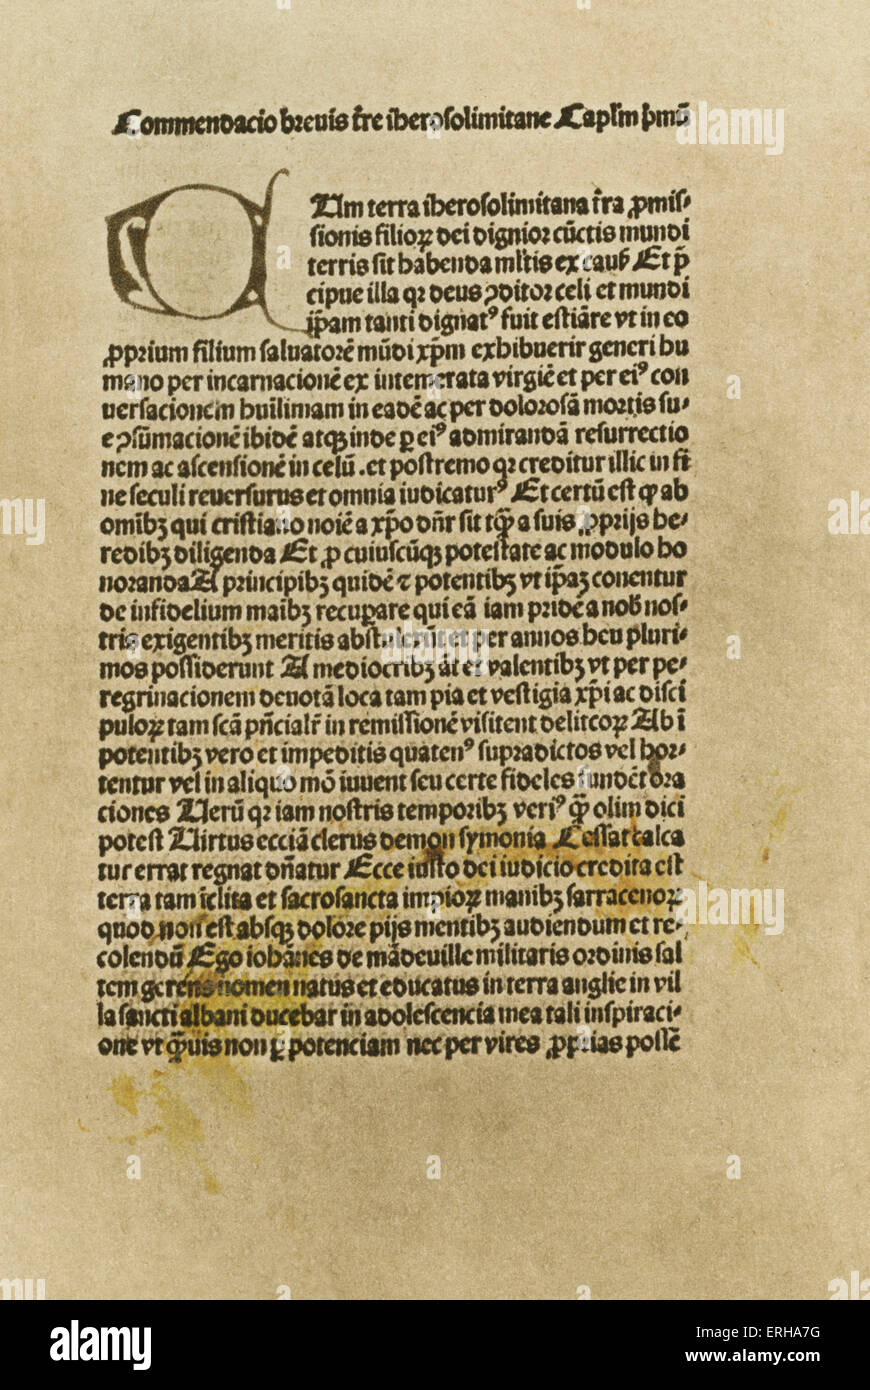 Commendacio breuis t̄re iherosolimitane Capl̄m p̄mū
CUm terra iherosolimitana t̄ra ꝓmis-
sionis filioꝝ dei dignior cūctis mundi
terris sit habenda ml̄tis ex cauß Et p̄
cipue illa qꝛ deus ꝯditor celi et mundi
ip̄am tanti dignatꝰ fuit estiāre vt in eo
ꝓprium filium saluatorē mūdi xp̄m exhibuerit generi hu
mano per incarnacionē ex intemerata virgiē et per eiꝰ con
uersacionem huilimam in eadē ac per dolorosā mortis su-
e ꝯsūmacionē ibidē atqꝫ inde ꝑ eiꝰ admirandā resurrectio
nem ac ascensionē in celū .et postremo qꝛ creditur illic in fi
ne seculi reuersurus et omnia iudicaturꝰ Et certū est ꝙ ab
omībꝫ qui cristiano noīe a xp̄o dn̄r sit tāꝙ̄ a suis ꝓprijs he-
redibꝫ diligenda Et ꝓ cuiuscūqꝫ potestate ac modulo ho
noranda A principibꝫ quidē ⁊ potentibꝫ vt ip̄aꝫ conentur
de infidelium maībꝫ recuꝑare qui eā iam pridē a nob̄ nos-
tris exigentibꝫ meritis abstulerūt et per annos heu pluri-
mos possiderunt A mediocribꝫ āt et valentibꝫ vt per pe-
regrinacionem deuotā loca tam pia et vestigia xp̄i ac disci
puloꝝ tam scā pn̄cialr̄ in remissionē visitent delitcoꝝ Ab ī
potentibꝫ vero et impeditis quatenꝰ supradictos vel hor-
tentur vel in aliquo mō iuuent seu certe fideles fundēt ora
ciones Uerū qꝛ iam nostris temporibꝫ veriꝰ ꝙ̄ olim dici
potest Uirtus ecciā clerus demon symonia Cessat calca
tur errat regnat dn̄atur Ecce iusto dei iudicio credita est
terra tam īclita et sacrosancta impioꝝ manibꝫ sarracenoꝝ
quod non est absqꝫ dolore pijs mentibꝫ audiendum et re-
colendū Ego iohānes de mādeuille militaris ordinis sal
tem gerens nomen natus et educatus in terra anglie in vil
la sancti albani ducebar in adolescencia mea tali inspiraci-
one vt ꝙ̄uis non ꝑ potenciam nec per vires ꝓprias possē
alamy
a
alamy
ERHA7G
www.alamy.com